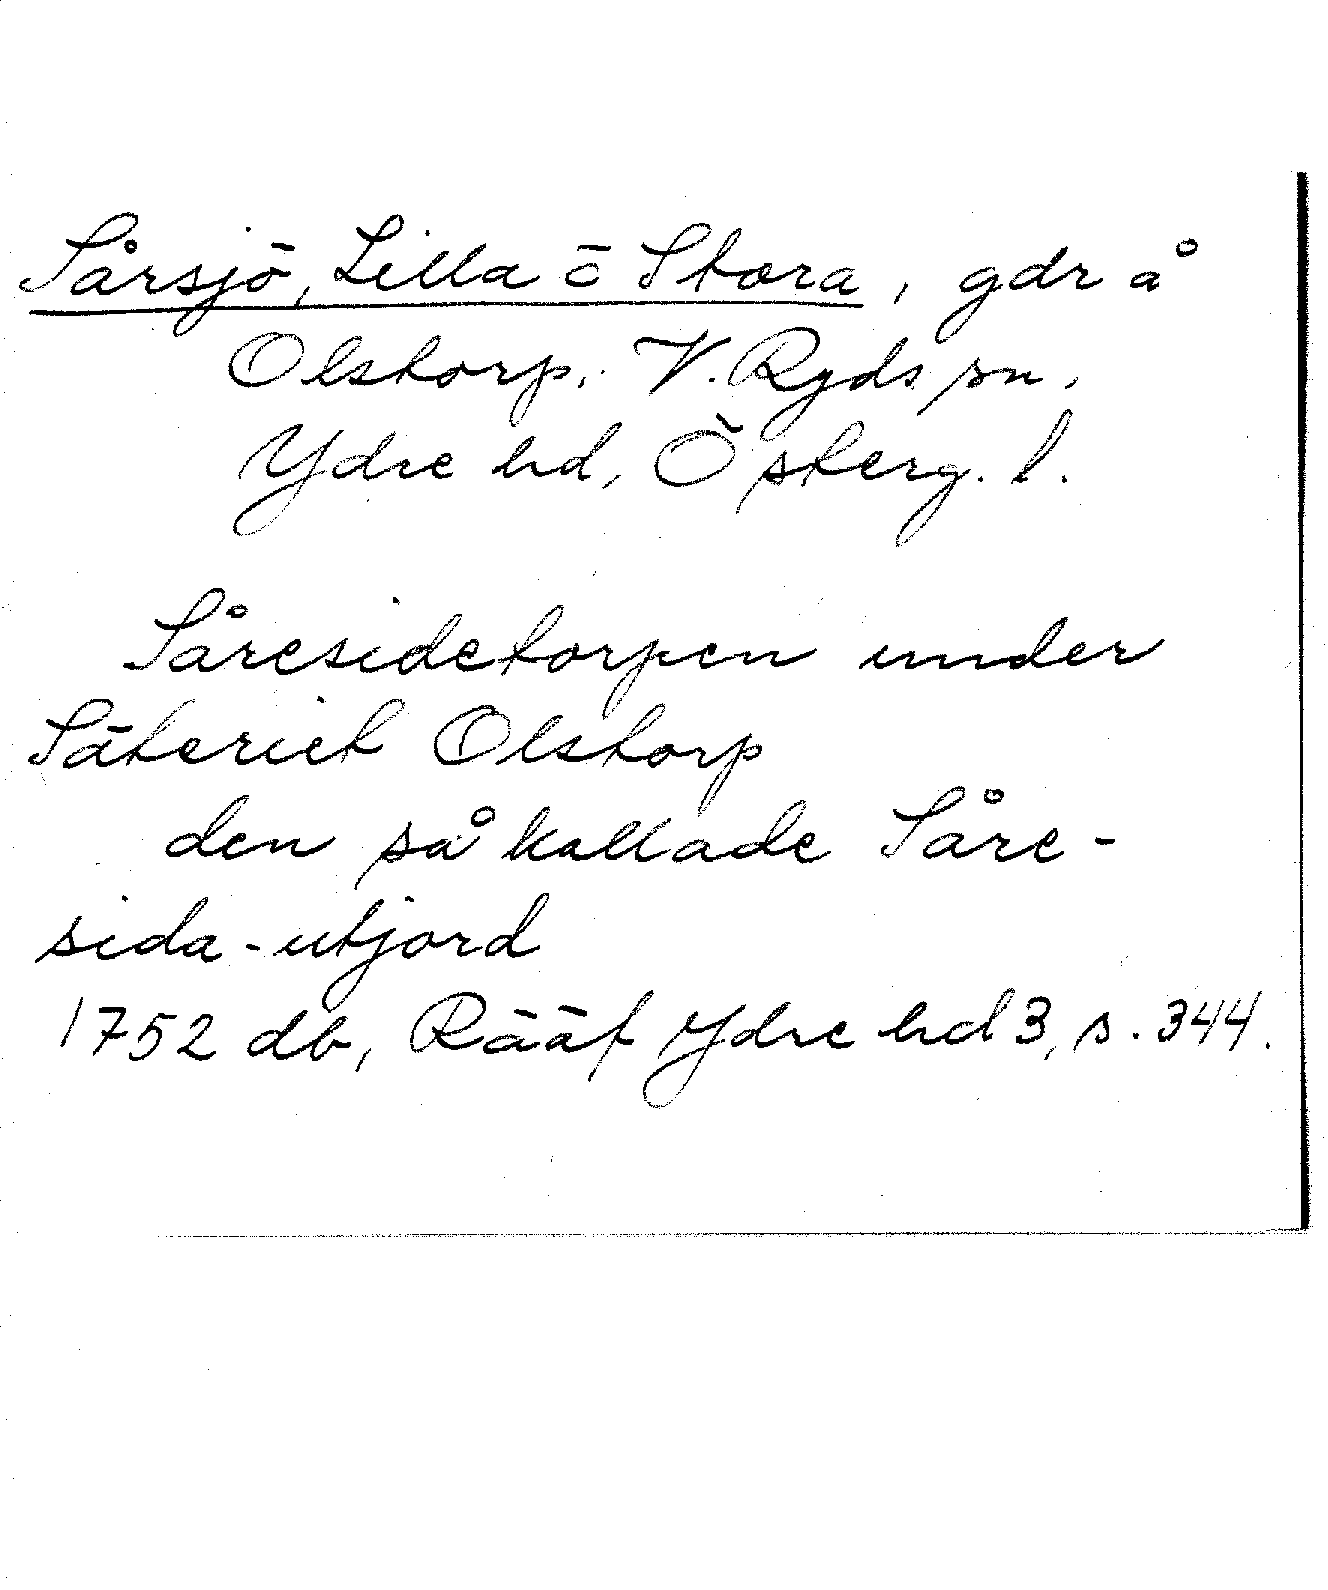 Sårsjö, Lilla o Stora, gdr å
Olstorp, V. Ryds sn,
Ydre hd, Österg. l.
Såresidetorpen under
Säteriet Olstorp
den så kallade Såre-
sida-utjord
1752 db, Rääf Ydre hd 3, s. 344.